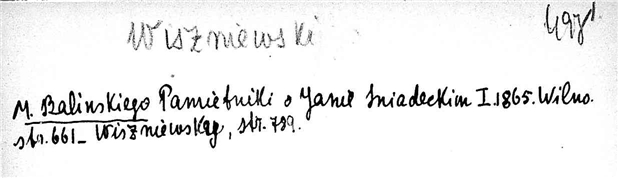 Wiszniewski
M. Balinskiego Pamietniki o Janie Sniadeckim I.1865. Wilno.
str. 661 - Wiszniewskey, str. 739.